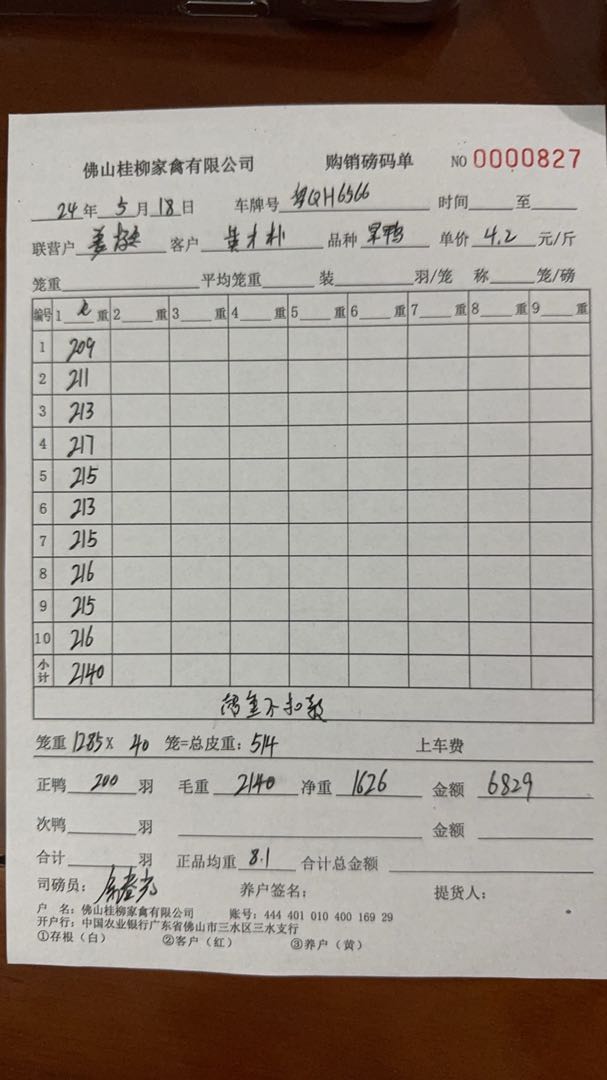 佛山桂柳家禽有限公司 购销磅码单 NO 0000827
24年5月18日 车牌号 粤QH6566 时间 至
联营户 客户 黄才朴 品种 黑鸭 单价 4.2 元/斤
笼重 平均笼重 装 羽/笼 称 笼/磅
编号 1 重 2 重 3 重 4 重 5 重 6 重 7 重 8 重 9 重
1 209
2 211
3 213
4 217
5 215
6 213
7 215
8 216
9 215
10 216
小计 2140
不扣款
笼重 1285 X 40 笼=总皮重: 514 上车费
正鸭 200 羽 毛重 2140 净重 1626 金额 6829
次鸭 羽 金额
合计 羽 正品均重 8.1 合计总金额
司磅员: 养户签名: 提货人:
户 名: 佛山桂柳家禽有限公司 账号: 444 401 010 400 169 29
开户行: 中国农业银行广东省佛山市三水区三水支行
①存根（白） ②客户（红） ③养户（黄）